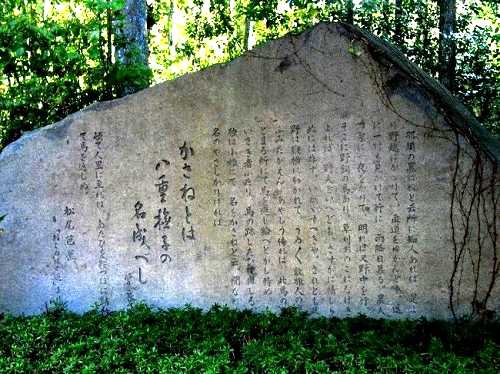 那須の黒ばねと云所に知人あれば、是より
野越にかかりて、直道をゆかんとす。遥
に一村を見かけて行に、雨降日暮る。農夫
の家に一夜をかりて、明れば又野中を行。
そこに野飼の馬あり。草刈おのこになげき
よれば、野夫といへどもさすがに情しら
ぬには非ず。いかがすべきや。されども此
野は縦横にわかれて、うゐうゐ敷旅人の
道ふみたがえん、あやしう侍れば、此馬の
とどまる所にて馬を返し給へとかし侍ぬ。
ちいさき者ふたり、馬の跡したひてはしる。
独は小姫にて、名をかさねと云。聞なれぬ
名のやさしかりければ
かさねとは
八重撫子の
名成べし
曽良
頓て人里に至れば、あたひを鞍つぼに結付
て馬を返しぬ。
松尾芭蕉